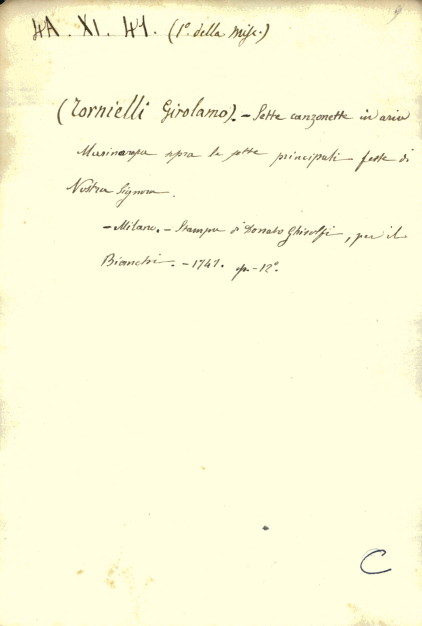 9
4A. XI. 41. (1º. della Misc.)
(Tornielli Girolamo). – Sette canzonette in aria
Marinaresca sopra le sette principali feste di
Nostra Signora.
– Milano. – Stampa di Donato Ghisolfi, per il
Bianchi. – 1741. op. – 12º.
C